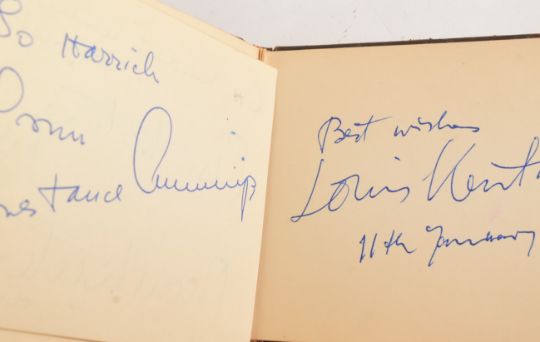 To Harrich
From
Cummings
Best wishes
Louis Kent
11th January